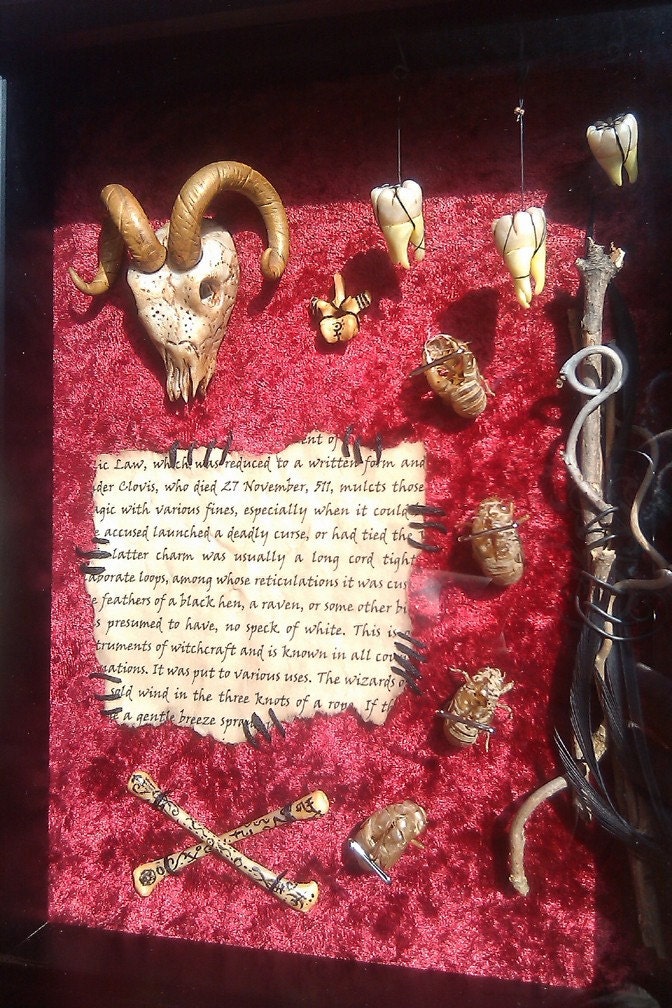 ent of
ic Law, which was reduced to a written form and
der Clovis, who died 27 November, 511, mulcts those
agic with various fines, especially when it could
accused launched a deadly curse, or had tied the
latter charm was usually a long cord tight
aborate loops, among whose reticulations it was cus
feathers of a black hen, a raven, or some other bi
s presumed to have, no speck of white. This is
truments of witchcraft and is known in all cou
nations. It was put to various uses. The wizards o
sold wind in the three knots of a rope. If th
a gentle breeze spra